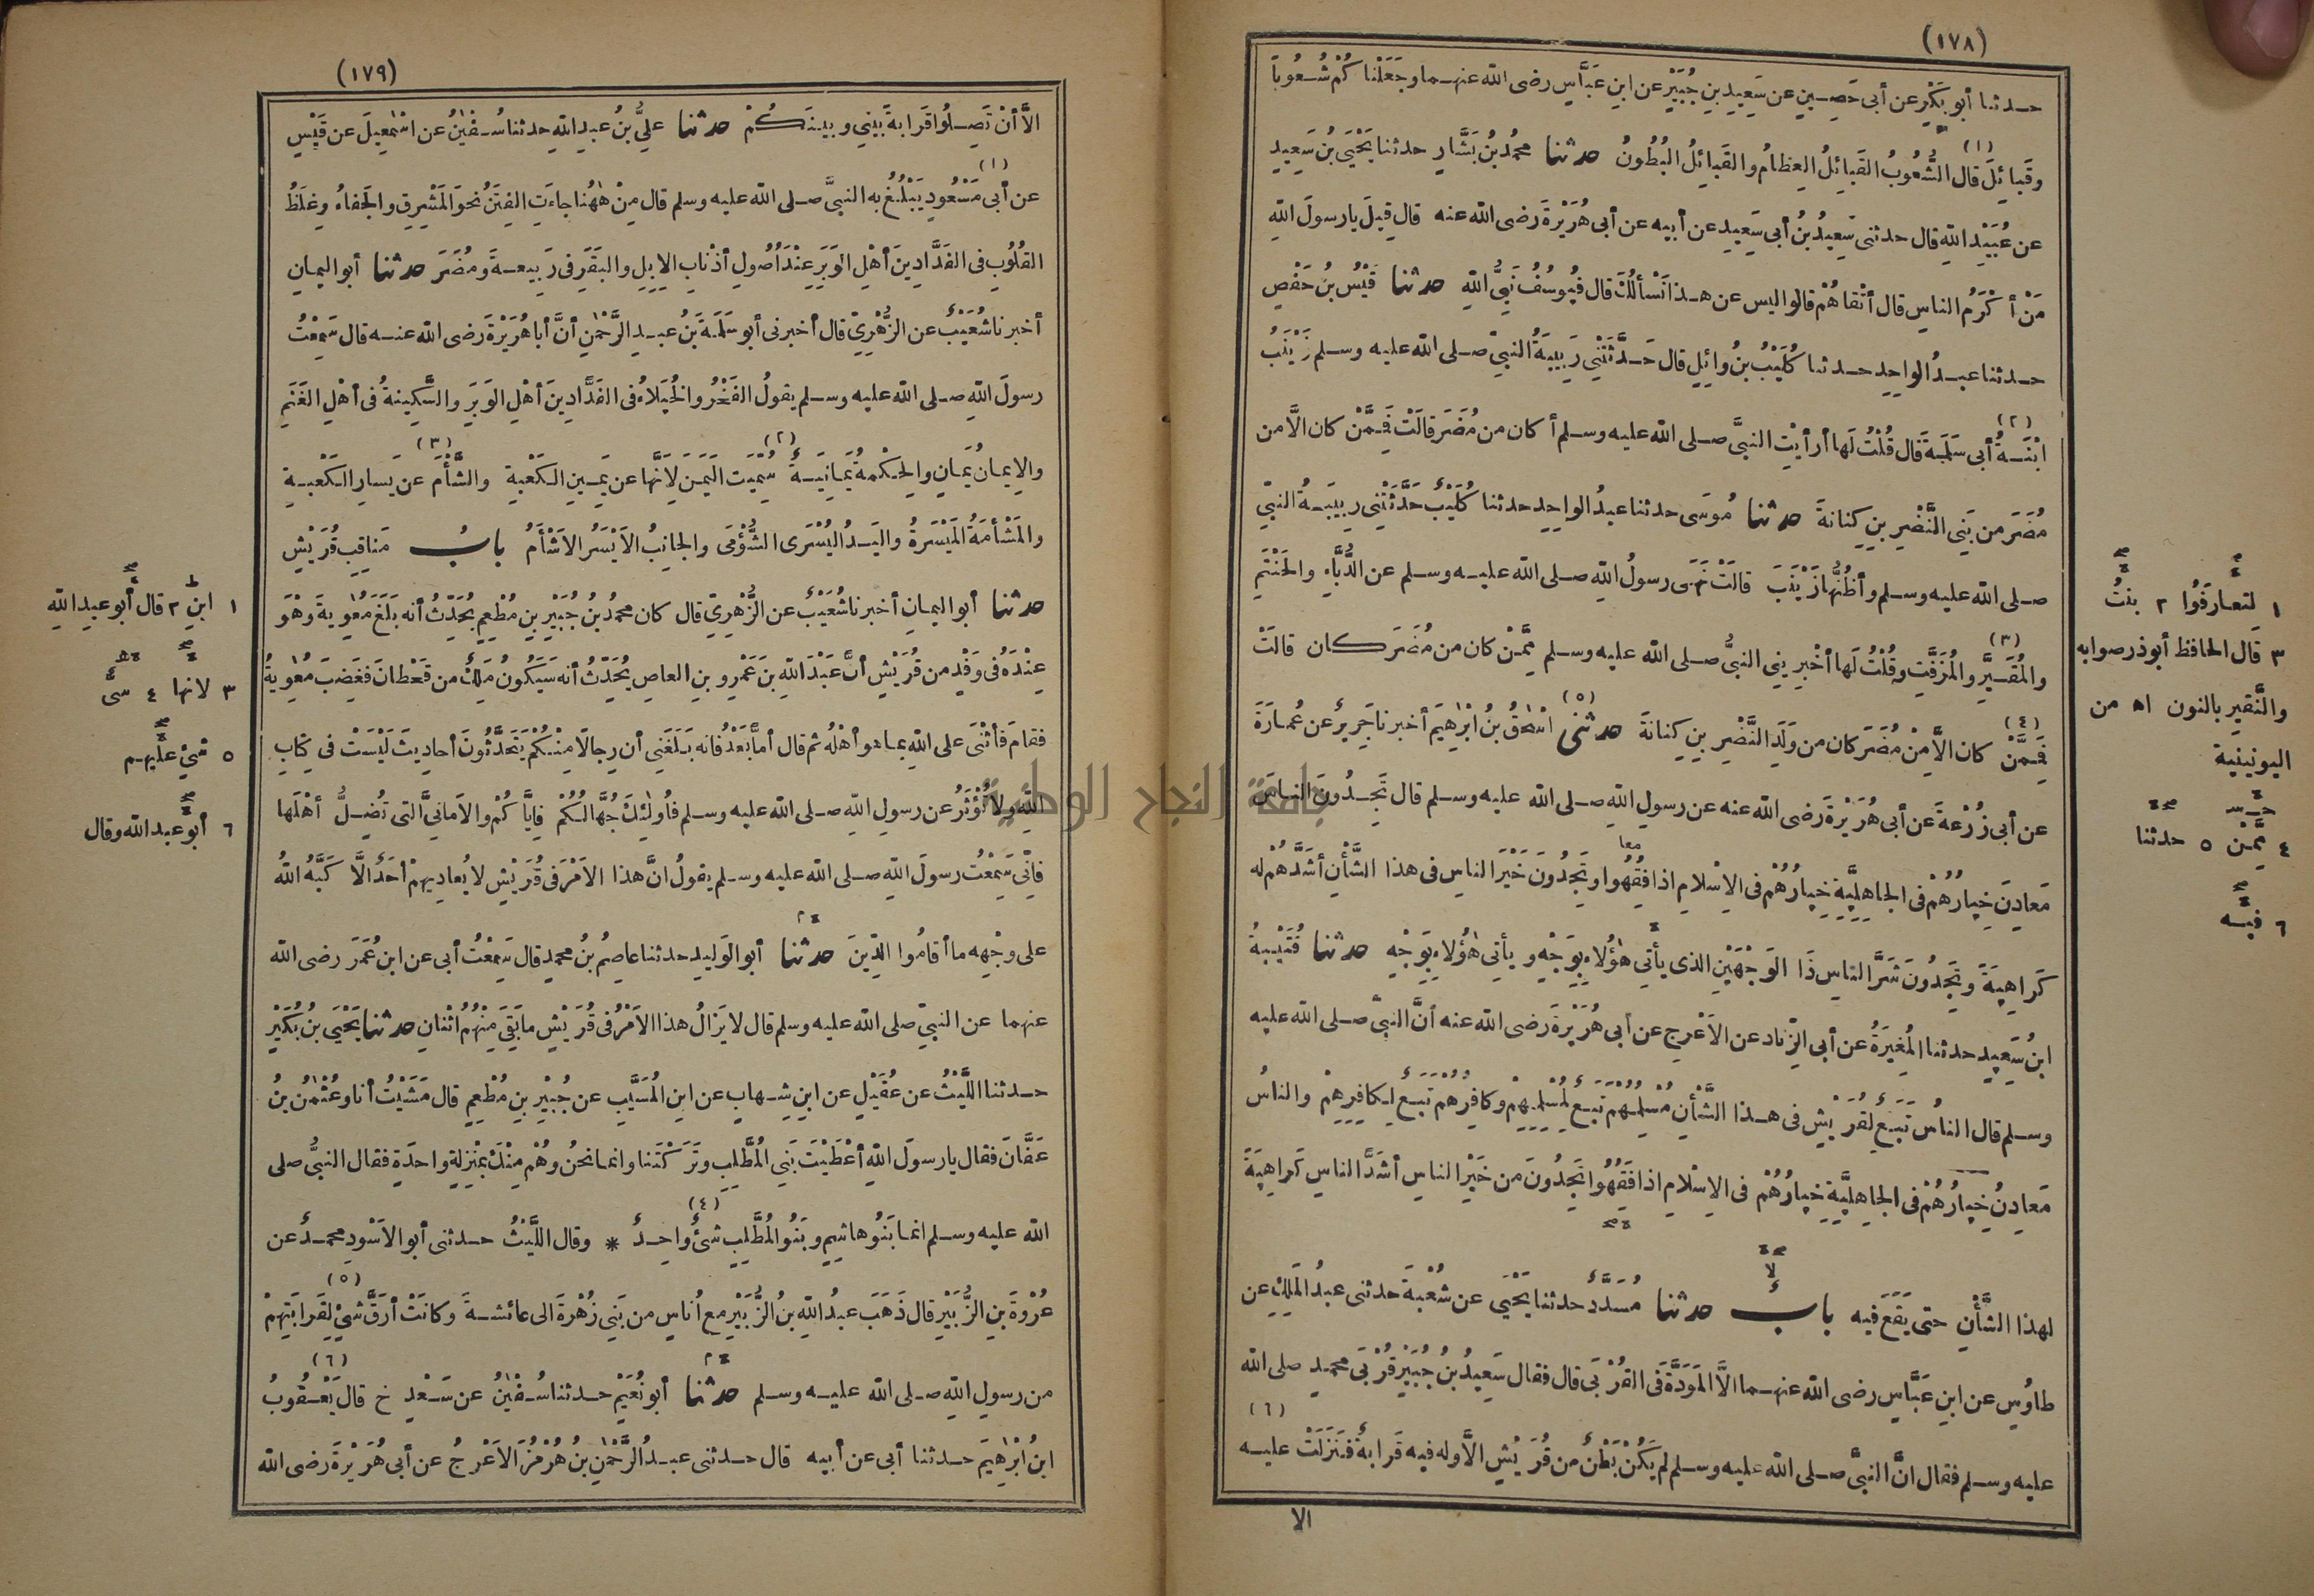 (١٧٨)
حدثنا أبو بكر عن أبى حَصِين عن سَعِيد بن جُبَيْر عن ابن عَبَّاس رضى الله عنهما وجَعَلْنا كُمْ شُعُوبًا
(١)
وقَبائِلَ قال الشُّعُوبُ القَبائِلُ العِظامُ والقَبائِلُ البُطُونُ حدثنا محمدُ بنُ بَشَّارٍ حدثنا يَحْيَى بنُ سَعِيدٍ
عن عُبَيْدِ اللهِ قال حدثنى سَعِيدُ بنُ أبى سَعِيدٍ عن أبيه عن أبى هُرَيْرَةَ رضى الله عنه قال قِيلَ يا رسولَ اللهِ
مَنْ أَكْرَمُ الناسِ قال أَتْقاهُمْ قالوا ليس عن هذا نَسْألُكَ قال فَيُوسُفُ نَبِيُّ اللهِ حدثنا قَيْسُ بنُ حَفْصٍ
حدثنا عبدُ الواحِدِ حدثنا كُلَيْبُ بنُ وائِلٍ قال حَدَّثَتْنِى رَبِيبَةُ النبيِّ صلى الله عليه وسلم زَيْنَبُ
(٢)
ابْنَةُ أبى سَلَمَةَ قال قُلْتُ لَها أرأيْتِ النبيَّ صلى الله عليه وسلم أكان من مُضَرَ قالَتْ فَمِمَّنْ كان الَّا من
مُضَرَ من بَنِى النَّضْرِ بنِ كِنانَةَ حدثنا مُوسَى حدثنا عبدُ الواحِد حدثنا كُلَيْبٌ حَدَّثَتْنِى رَبِيبَةُ النبيِّ
صلى الله عليه وسلم وأظُنُّها زَيْنَبَ قالَتْ نَهَى رسولُ اللهِ صلى الله عليه وسلم عن الدُّبَّاءِ والحَنْتَمِ
(٣)
والمُقَيَّرِ والمُزَفَّتِ وقُلْتُ لَها أخْبِرِينِى النبيُّ صلى الله عليه وسلم مِمَّنْ كان من مُضَرَ كان قالَتْ
(٤) (٥)
فَمِمَّنْ كان الَّا مِنْ مُضَرَ كان من وَلَدِ النَّضْرِ بنِ كِنانَةَ حدثنى اسْحٰقُ بنُ ابْرٰهِيمَ أخبرنا جَرِيرٌ عن عُمارَةَ
عن أبى زُرْعَةَ عن أبى هُرَيْرَةَ رضى الله عنه عن رسولِ اللهِ صلى الله عليه وسلم قال تَجِدُونَ الناسَ
معا
مَعادِنَ خِيارُهُمْ فى الجاهِلِيَّةِ خِيارُهُمْ فى الاسْلامِ اذا فَقِهُوا وتَجِدُونَ خَيْرَ الناسِ فى هذا الشَّأْنِ أشَدَّهُمْ له
كَراهِيَةً وتَجِدُونَ شَرَّ الناسِ ذَا الوَجْهَيْنِ الذى يأتِى هٰؤُلاءِ بِوَجْهٍ ويأتِى هٰؤُلاءِ بِوَجْهٍ حدثنا قُتَيْبَةُ
ابنُ سَعِيدٍ حدثنا المُغِيرَةُ عن أبى الزِّناد عن الاَعْرجِ عن أبى هُرَيْرَةَ رضى الله عنه أنَّ النبيَّ صلى الله عليه
وسلم قال الناسُ تَبَعٌ لقُرَيْشٍ فى هذا الشَّأْنِ مُسْلِمُهُمْ تَبَعٌ لِمُسْلِمِهِمْ وكافِرُهُمْ تَبَعٌ لِكافِرِهِمْ والناسُ
مَعادِنُ خِيارُهُمْ فى الجاهِلِيَّةِ خِيارُهُمْ فى الاسْلامِ اذا فَقِهُوا تَجِدُونَ من خَيْرِ الناسِ أشَدَّ الناسِ كَراهِيَةً
لهذا الشَّأْنِ حتى يَقَعَ فيه بابٌ حدثنا مُسَدَّدٌ حدثنا يَحْيَى عن شُعْبَةَ حدثنى عبدُ المَلِكِ عن
طاوُسٍ عن ابنِ عَبَّاسٍ رضى الله عنهما الَّا المَوَدَّةَ فى القُرْبَى قال فقال سَعِيدُ بنُ جُبَيْرٍ قُرْبَى محمدٍ صلى الله
(٦)
عليه وسلم فقال انَّ النبيَّ صلى الله عليه وسلم لم يَكُنْ بَطْنٌ من قُرَيْشٍ الَّا وله فيه قَرابَةٌ فَنَزَلَتْ عليه
الا
١ لتعارفُوا ٢ بنتُ
٣ قال الحافظ أبو ذر صوابه
والنَّقِير بالنون اه من
اليونينية
٤ مِمَّنْ ٥ حدثنا
٦ فيه
(١٧٩)
الَّا أنْ تَصِلُوا قَرابَةَ بَيْنِى وبينَكُمْ حدثنا علِيُّ بنُ عبدِ اللهِ حدثنا سُفْيٰنُ عن اسْمٰعِيلَ عن قَيْسٍ
(١)
عن أبى مَسْعُودٍ يَبْلُغُ به النبيَّ صلى الله عليه وسلم قال مِنْ هٰهُنا جاءَتِ الفِتَنُ نحوَ المَشْرِقِ والجَفاءُ وغِلَظُ
القُلُوبِ فى الفَدَّادِينَ أهْلِ الوَبَرِ عِنْدَ أُصُولِ أذْنابِ الاِبِلِ والبَقَرِ فى رَبِيعَةَ ومُضَرَ حدثنا أبو اليمانِ
أخبرنا شُعَيْبٌ عن الزُّهْرِيِّ قال أخبرنى أبو سَلَمَةَ بنُ عبدِ الرَّحْمٰنِ أنَّ أبا هُرَيْرَةَ رضى الله عنه قال سَمِعْتُ
رسولَ اللهِ صلى الله عليه وسلم يقولُ الفَخْرُ والخُيَلاءُ فى الفَدَّادِينَ أهْلِ الوَبَرِ والسَّكِينَةُ فى أهْلِ الغَنَمِ
(٢) (٣)
والاِيمانُ يَمانٍ والحِكْمَةُ يَمانِيَةٌ سُمِّيَتِ اليَمَنَ لِاَنَّها عن يَمِينِ الكَعْبَةِ والشَّأْمَ عن يَسارِ الكَعْبَةِ
والمَشْأَمَةُ المَيْسَرَةُ واليَدُ اليُسْرَى الشُّؤْمَى والجانِبُ الاَيْسَرُ الاَشْأَمُ بابُ مَناقِبِ قُرَيْشٍ
حدثنا أبو اليمانِ أخبرنا شُعَيْبٌ عن الزُّهْرِيِّ قال كان محمدُ بنُ جُبَيْرِ بنِ مُطْعِمٍ يُحَدِّثُ أنه بَلَغَ مُعٰوِيةَ وهْوَ
عِنْدَهُ فى وَفْدٍ من قُرَيْشٍ أنَّ عَبْدَ اللهِ بنَ عَمْرِو بنِ العاصِ يُحَدِّثُ أنه سَيَكُونُ مَلِكٌ من قَحْطانَ فغَضِبَ مُعٰوِيةُ
فقامَ فأثْنَى على اللهِ بما هو أهْلُه ثم قال أمَّا بَعْدُ فانه بَلَغَنِى أن رِجالًا مِنْكُمْ يَتَحَدَّثُونَ أحادِيثَ لَيْسَتْ فى كِتابِ
اللهِ ولا تُؤْثَرُ عن رسولِ اللهِ صلى الله عليه وسلم فأُولٰئِكَ جُهَّالُكُمْ فايَّا كُمْ والاَمانِيَّ التى تُضِلُّ أهْلَها
فاِنِّى سَمِعْتُ رسولَ اللهِ صلى الله عليه وسلم يقولُ انَّ هذا الاَمْرَ فى قُرَيْشٍ لا يُعادِيهِمْ أحَدٌ الَّا كَبَّهُ اللهُ
على وجْهِه ما أقامُوا الدِّينَ حدثنا أبو الوَلِيدِ حدثنا عاصِمُ بنُ محمدٍ قال سَمِعْتُ أبى عن ابنِ عُمَرَ رضى الله
عنهما عن النبيِّ صلى الله عليه وسلم قال لا يَزالُ هذا الاَمْرُ فى قُرَيْشٍ ما بَقِىَ مِنْهُمُ اثْنانِ حدثنا يَحْيَى بنُ بُكَيْرٍ
حدثنا اللَّيْثُ عن عُقَيْلٍ عن ابنِ شِهابٍ عن ابنِ المُسَيَّبِ عن جُبَيْرِ بنِ مُطْعِمٍ قال مَشَيْتُ أنا وعُثْمٰنُ بنُ
عَفَّانَ فقال يا رسولَ اللهِ أعْطَيْتَ بَنِى المُطَّلِبِ وتَرَكْتَنا وانما نحنُ وهُمْ مِنْكَ بِمَنْزِلَةٍ واحِدَةٍ فقال النبيُّ صلى
(٤)
الله عليه وسلم انما بَنُو هاشِمٍ وبَنُو المُطَّلِبِ شَىْءٌ واحِدٌ * وقال اللَّيْثُ حدثنى أبو الاَسْودِ محمدٌ عن
(٥)
عُرْوَةَ بنِ الزُّبَيْرِ قال ذَهَبَ عبدُ اللهِ بنُ الزُّبَيْرِ مع أُناسٍ من بَنِى زُهْرَةَ الى عائشةَ وكانَتْ أرَقَّ شَىْءٍ لِقَرابَتِهِمْ
(٦)
من رسولِ اللهِ صلى الله عليه وسلم حدثنا أبو نُعَيْمٍ حدثنا سُفْيٰنُ عن سَعْدٍ ح قال يَعْقُوبُ
ابنُ ابْرٰهِيمَ حدثنا أبى عن أبيه قال حدثنى عبدُ الرَّحْمٰنِ بنُ هُرْمُزَ الاَعْرجُ عن أبى هُرَيْرَةَ رضى الله
١ ابنِ ٢ قال أبو عبد الله
٣ لانها ٤ سِىٌّ
٥ شىءٍ عليهم
٦ أبو عبد الله وقال
جامعة النجاح الوطنية